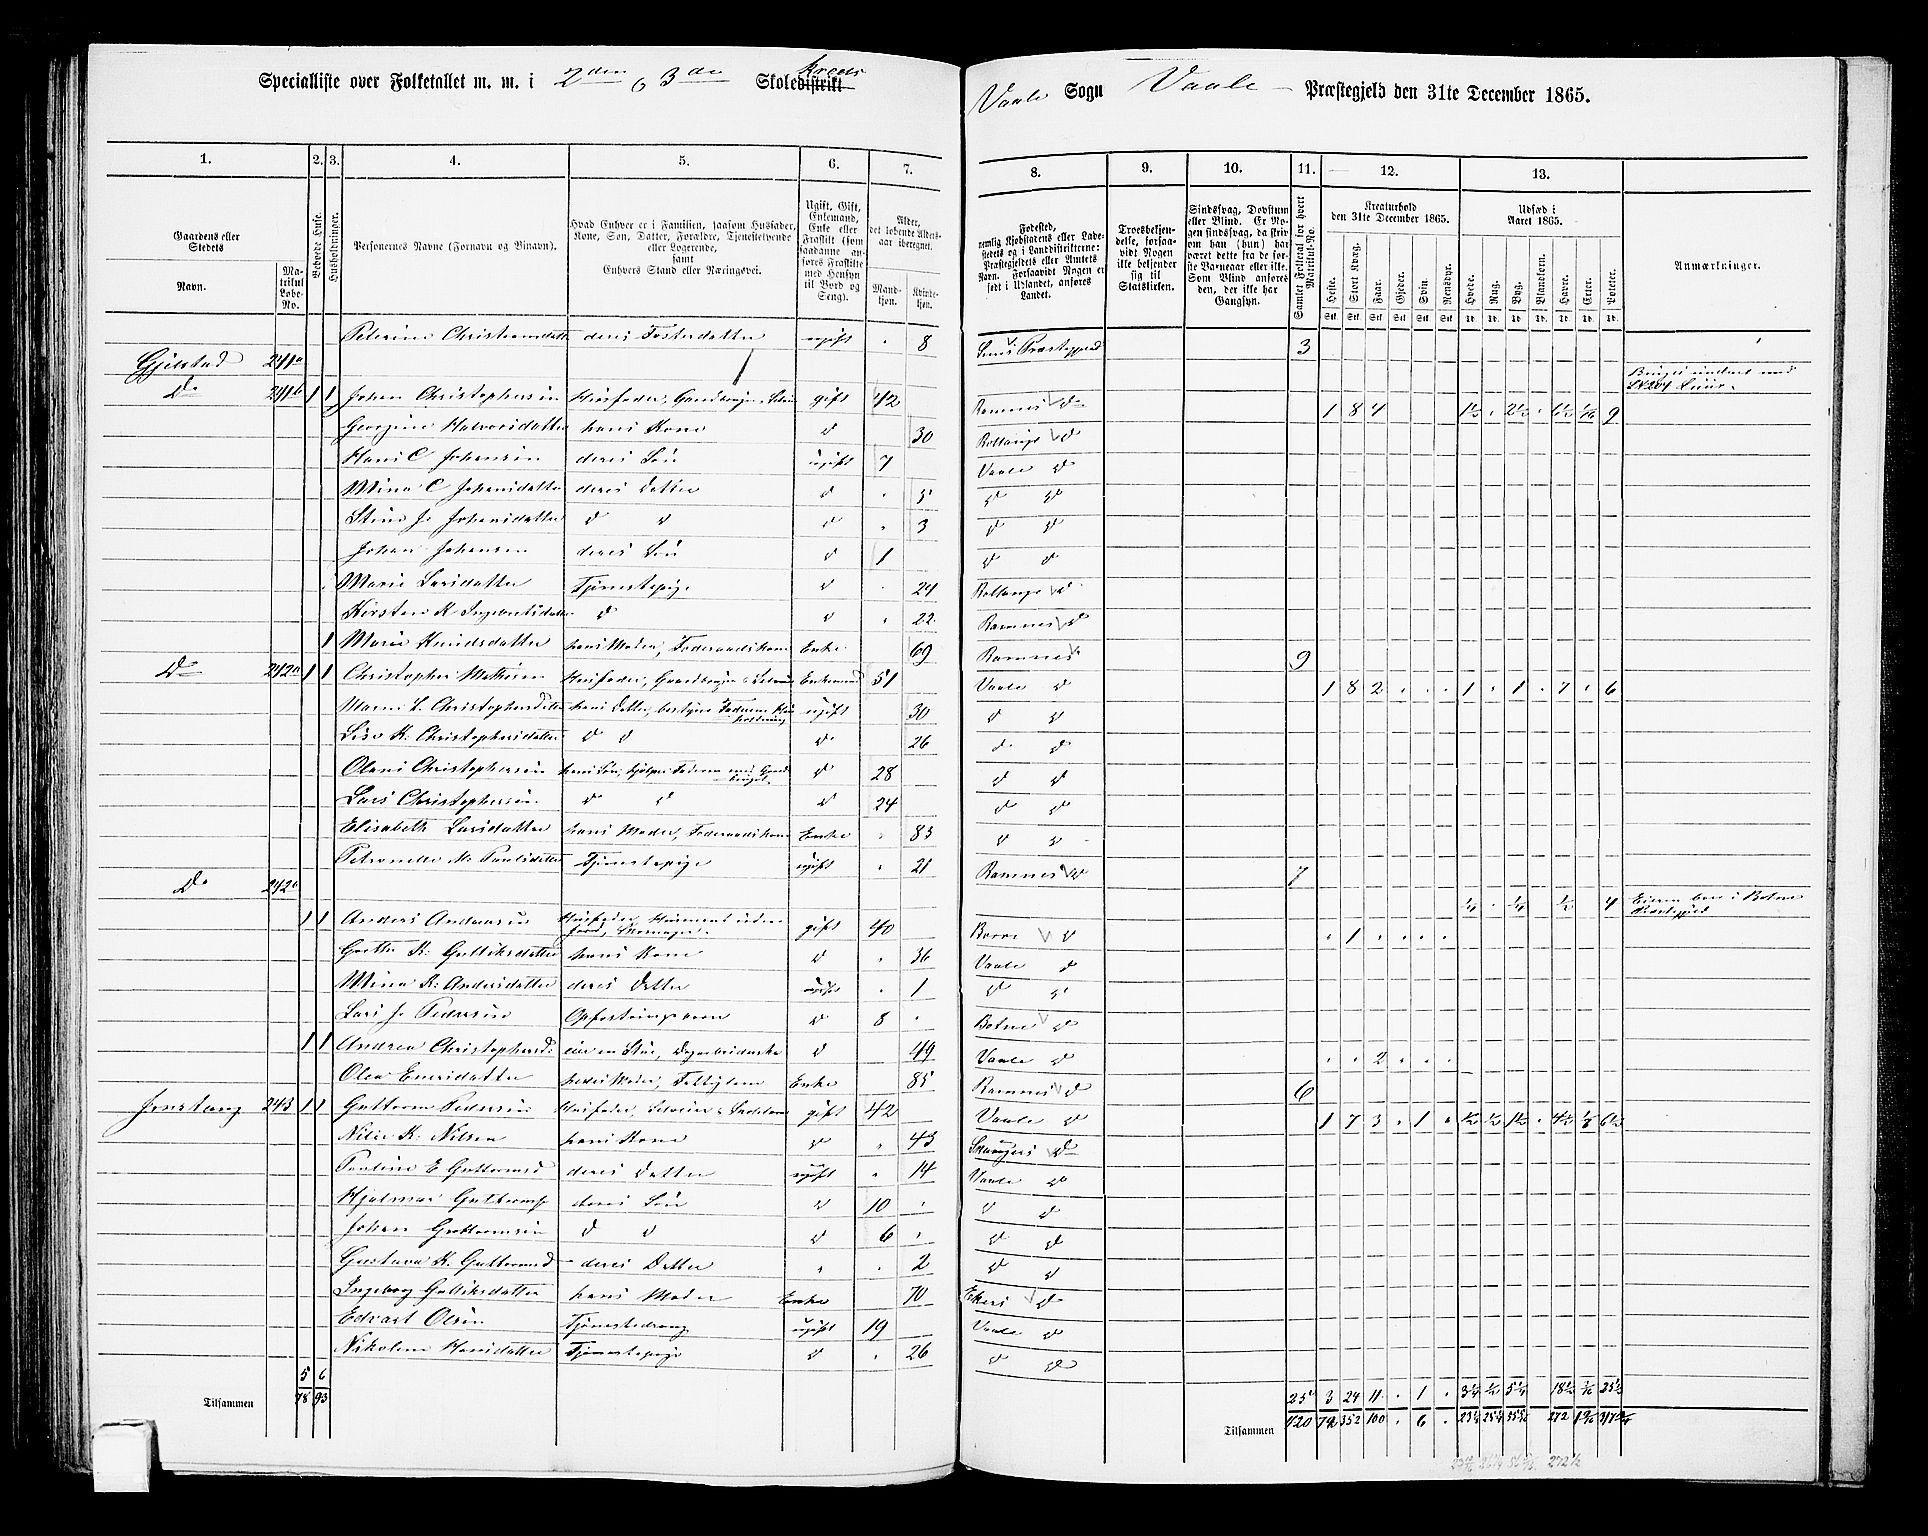 Specialliste over Folketallet m. m. i 2den o 3de Skoledistrikt kreds
Vaale Sogn Vaale Præstegjeld den 31te December 1865.
1. 2. 3. 4. 5. 6. 7. 8. 9. 10. 11. 12. 13.
Gaardens eller Stedets
Navn.
Matrikul Løbe-No.
Beboede Huse.
Husholdninger.
Personernes Navne (Fornavn og Binavn).
Hvad Enhver er i Familien, saasom Husfader, Kone, Søn, Datter, Forældre, Tjenestetyende eller Logerende,
samt
Enhvers Stand eller Næringsvei.
Ugift, Gift, Enkemand, Enke eller Fraskilt (som saadanne anføres Fraskilte med Hensyn til Bord og Seng).
Alder, det løbende Alders-aar iberegnet.
Mandkjøn.
Kvindekjøn.
Fødested,
nemlig Kjøbstadens eller Ladestedets og i Landdistrikterne: Præstegjeldets eller Amtets Navn. Forsaavidt Nogen er født i Udlandet, anføres Landet.
Troesbekjendelse, forsaavidt Nogen ikke bekjender sig til Statskirken.
Sindssvag, Døvstum eller Blind. Er Nogen sindssvag, da skrives om han (hun) har været dette fra de første Barneaar eller ikke. Som Blind anføres den, der ikke har Gangsyn.
Samlet Folketal for hvert Matrikul-No.
Kreaturhold
den 31te December 1865.
Heste. Stort Kvæg. Faar. Gjeder. Svin. Rensdyr.
Udsæd i
Aaret 1865.
Hvede. Rug. Byg. Blandkorn. Havre. Erter. Poteter.
Anmærkninger.
Petrine Christiansdatter deres Fosterdatter ugift 8 Præstegjeld 3
Gjelstad 241a
Do 241b 1 1 Johan Christophersen Husfader, Gaardbruger Selveier gift 42 Ramnes Do 1 8 4 1½ 2½ 6½ 1/16 9
Georgine Halvorsdatter hans Kone do 30 do
Hans C Johansen deres Søn ugift 7 Vaale do
Mina C Johansdatter deres Datter do 5 do do
Stine J. Johansdatter do do do 3 do do
Johan Johansen deres Søn do 1 do do
Marie Larsdatter Tjenestepige do 24 do
Kirsten K Ingebretsdatter do do 22 Ramnes do
1 Marie Knudsdatter hans Moder, Føderaadskone Enke 69 Ramnes 9
Do 242a 1 1 Christopher Mathisen Husfader, Gaardbruger Selveier Enkemand 51 Vaale do 1 8 2 1 1 7 6
Maren L. Christophersdatter hans Datter, bestyrer Faderens Husholdning ugift 30 do do
Lise K. Christophersdatter do do do 26 do do
Olaus Christophersen hans Søn, hjelper Faderen med Gaardbruget do 28 do do
Lars Christophersen do do do 24 do do
Elisabeth Larsdatter hans Moder, Føderaadskone Enke 83 do do
Petronelle M. Paulsdatter Tjenestepige ugift 21 Ramnes do 7
Do 242b ¼ ¼ ½ 4 Eieren bor i Botne Præstegjeld
1 1 Anders Andersen Husfader, Huusmand uden Jord, Skomager gift 40 Borre do 1
Grethe K. Gulliksdatter hans Kone do 36 Vaale do
Mina K. Andersdatter deres Datter ugift 1 do do
Lars J. Pedersen Opfostringsbarn do 8 Botne do
1 1 Andrea Christophersd. eier en Stue, Dagarbeiderske do 49 Vaale do 2
Olea Enersdatter hendes Moder, Fattiglem Enke 85 Ramnes do 6
243 1 1 Guttorm Pedersen Husfader, Selveier gift 42 Vaale do 1 7 3 1 ½ ½ 1½ 4½ ⅛ 6½
K. Nilsen hans Kone do 43 do
Pauline E Guttormsd deres Datter ugift 14 Vaale do
Hjalmar Guttorms. deres Søn do 10 do do
Johan Guttormsen do do do 6 do do
Gustava K. Guttormsd deres Datter 2 do do
Ingeborg Gulliksdatter hans Moder Enke 70 Ekers do
Edvart Olsen Tjenestedreng ugift 19 Vaale do
Nikoline Hansdatter Tjenestepige do 26 do do
5 6 25 3 24 11 1 3¼ ¼ 5¼ 18½ 3/16 25½
Tilsammen 78 93 Tilsammen 420 352 100 6 272